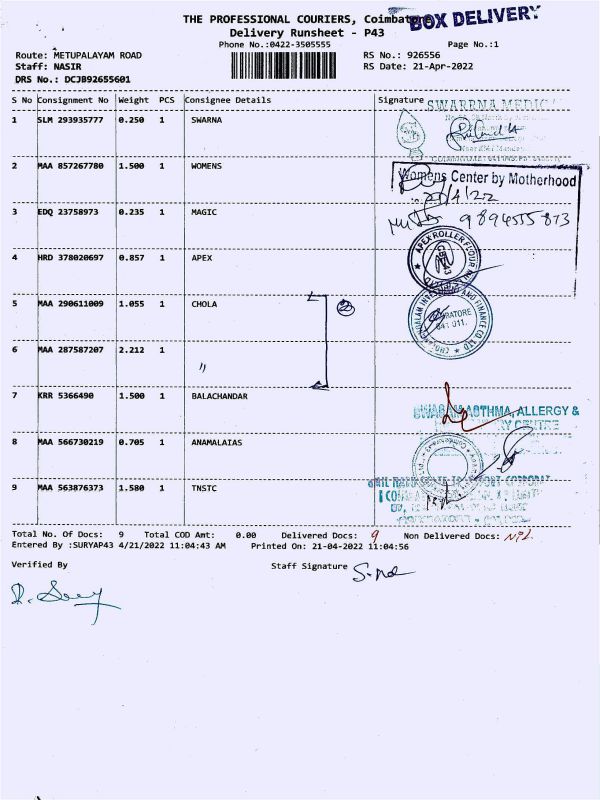 THE PROFESSIONAL COURIERS, Coimbatore
BOX DELIVERY
Delivery Runsheet - P43
Phone No.:0422-3505555
Page No.:1
Route: METUPALAYAM ROAD
RS No.: 926556
Staff: NASIR
RS Date: 21-Apr-2022
DRS No.: DCJB92655601
S No Consignment No Weight PCS Consignee Details Signature
SWARRNA MEDIC
1 SLM 293935777 0.250 1 SWARNA
2 MAA 857267780 1.500 1 WOMENS
Womens Center by Motherhood
21/4/22
3 EDQ 23758973 0.235 1 MAGIC
9894555873
APEX ROLLER FLOUR
4 HRD 378020697 0.857 1 APEX
5 MAA 290611009 1.055 1 CHOLA
AND FINANCE CO LTD
641 011.
6 MAA 287587207 2.212 1 "
7 KRR 5366490 1.500 1 BALACHANDAR
ASTHMA, ALLERGY &
8 MAA 566730219 0.705 1 ANAMALAIAS
9 MAA 563876373 1.580 1 TNSTC
Total No. Of Docs: 9 Total COD Amt: 0.00 Delivered Docs: 9 Non Delivered Docs: NIL
Entered By :SURYAP43 4/21/2022 11:04:43 AM Printed On: 21-04-2022 11:04:56
Verified By
Staff Signature